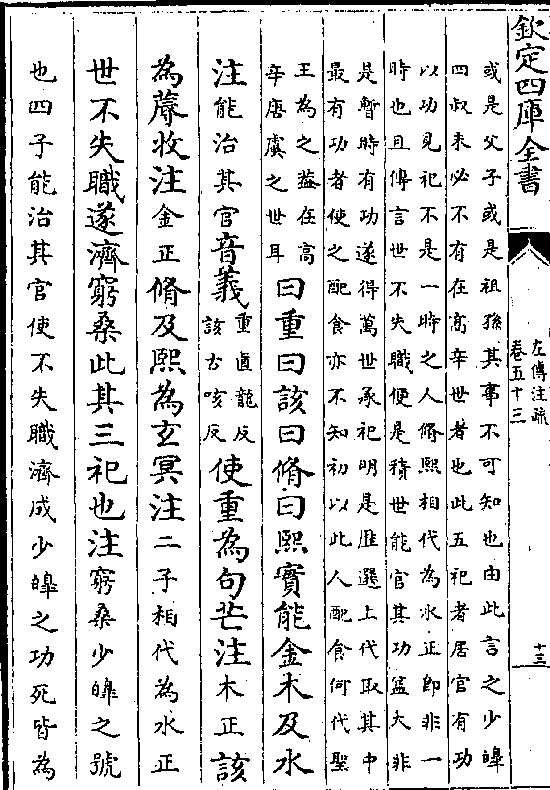 欽定四庫全書
左傳注疏
卷五十三
十三
或是父子或是祖孫其事不可知也由此言之少皥
四叔未必不有在髙辛世者也此五祀者居官有功
以功見祀不是一時之人脩熙相代為水正即非一
時也且傳言世不失職便是積世能官其功益大非
是暫時有功遂得萬世承祀明是歴選上代取其中
最有功者使之配食亦不知初以此人配食何代聖
王為之益在高
辛唐虞之世耳
曰重曰該曰脩曰熙實能金木及水
注能治其官音義
重直龍反
該古咳反
使重為句芒注木正該
為蓐收注金正脩及熙為玄冥注二子相代為水正
世不失職遂濟窮桑此其三祀也注窮桑少皥之號
也四子能治其官使不失職濟成少皥之功死皆為